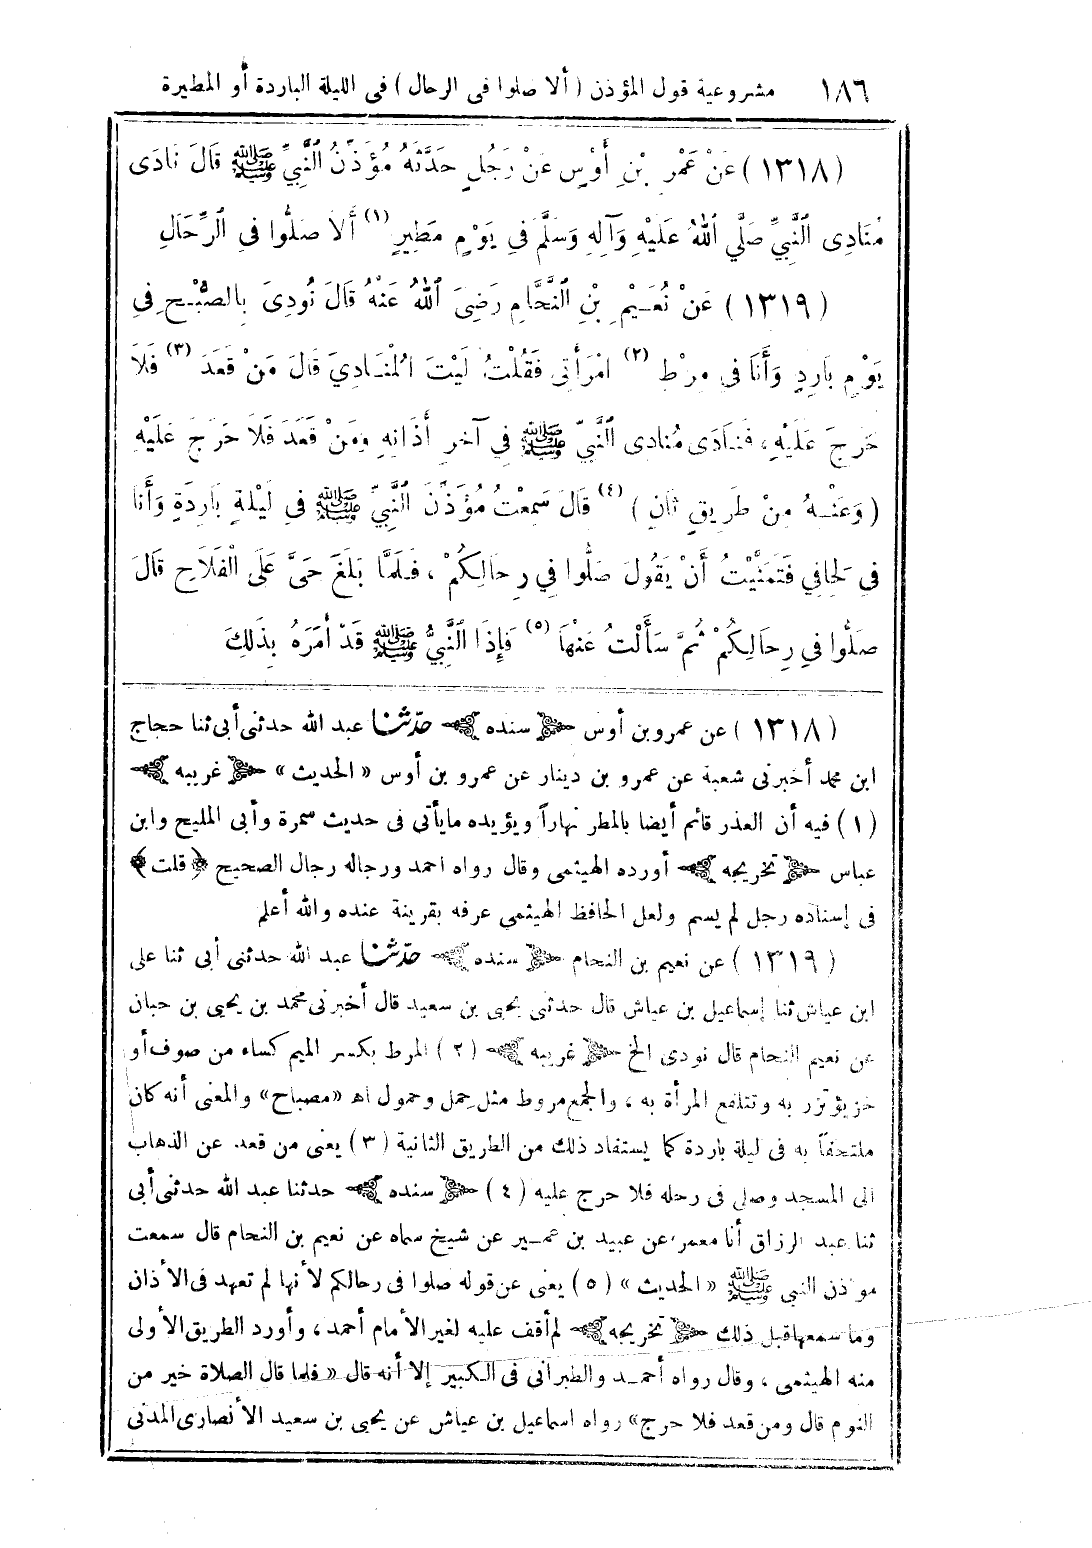 ١٨٦ مشروعية قول المؤذن ( ألا صلوا فى الرحال ) فى الليلة الباردة أو المطيرة
( ١٣١٨ ) عَنْ عَمْرِ بْنِ أَوْسٍ عَنْ رَجُلٍ حَدَّثَهُ مُؤَذِّنُ النَّبِيِّ ﷺ قَالَ نَادَى
مُنَادِى النَّبِيِّ صَلَّي اللهُ عَلَيْهِ وَآلِهِ وَسَلَّمَ فِي يَوْمٍ مَطِيرٍ (١) أَلاَ صَلُّوا فِى الرِّحَالِ
( ١٣١٩ ) عَنْ نُعَيْمِ بْنِ النَّحَّامِ رَضِيَ اللهُ عَنْهُ قَالَ نُودِىَ بِالصُّبْحِ فِى
يَوْمٍ بَارِدٍ وَأَنَا فِي مِرْطِ (٢) امْرَأَتِى فَقُلْتُ لَيْتَ الْمُنَادِيَ قَالَ مَنْ قَعَدَ (٣) فَلاَ
حَرَجَ عَلَيْهِ ، فَنَادَى مُنَادِى النَّبِيِّ ﷺ فِي آخِرِ أَذَانِهِ وَمَنْ قَعَدَ فَلاَ حَرَجَ عَلَيْهِ
( وَعَنْهُ مِنْ طَرِيقٍ ثَانٍ ) (٤) قَالَ سَمِعْتُ مُؤَذِّنَ النَّبِيِّ ﷺ فِي لَيْلَةٍ بَارِدَةٍ وَأَنَا
فِى لِحَافِي فَتَمَنَّيْتُ أَنْ يَقُولَ صَلُّوا فِي رِحَالِكُمْ ، فَلَمَّا بَلَغَ حَىَّ عَلَى الْفَلاَحِ قَالَ
صَلُّوا فِي رِحَالِكُمْ ثُمَّ سَأَلْتُ عَنْهَا (٥) فَإِذَا النَّبِيُّ ﷺ قَدْ أَمَرَهُ بِذَلِكَ
( ١٣١٨ ) عن عمرو بن أوس ﴿ سنده ﴾ حدّثنا عبد الله حدثنى أبى ثنا حجاج
ابن محمد أخبرنى شعبة عن عمرو بن دينار عن عمرو بن أوس « الحديث » ﴿ غريبه ﴾
( ١ ) فيه أن العذر قائم أيضا بالمطر نهاراً ويؤيده مايأتى فى حديث سمرة وأبى المليح وابن
عباس ﴿ تخريجه ﴾ أورده الهيثمى وقال رواه احمد ورجاله رجال الصحيح ﴿ قلت ﴾
فى إسناده رجل لم يسم ولعل الحافظ الهيثمى عرفه بقرينة عنده والله أعلم
( ١٣١٩ ) عن نعيم بن النحام ﴿ سنده ﴾ حدّثنا عبد الله حدثنى أبى ثنا على
ابن عياش ثنا إسماعيل بن عياش قال حدثنى يحيى بن سعيد قال أخبرنى محمد بن يحيى بن حبان
عن نعيم النحام قال نودى الخ ﴿ غريبه ﴾ ( ٢ ) المرط بكسر الميم كساء من صوف أو
خز يؤتزر به وتتلفع المرأة به ، والجمع مروط مثل حمل وحمول اه «مصباح» والمعنى أنه كان
ملتحفاً به فى ليلة باردة كما يستفاد ذلك من الطريق الثانية ( ٣ ) يعنى من قعد عن الذهاب
الى المسجد وصلى فى رحله فلا حرج عليه ( ٤ ) ﴿ سنده ﴾ حدثنا عبد الله حدثنى أبى
ثنا عبد الرزاق أنا معمر عن عبيد بن عمير عن شيخ سماه عن نعيم بن النحام قال سمعت
موذن النبى ﷺ « الحديث » ( ٥ ) يعنى عن قوله صلوا فى رحالكم لأنها لم تعهد فى الأذان
وما سمعها قبل ذلك ﴿ تخريجه ﴾ لم أقف عليه لغير الأمام أحمد ، وأورد الطريق الأولى
منه الهيثمى ، وقال رواه أحمد والطبرانى فى الكبير إلا أنه قال « فلما قال الصلاة خير من
النوم قال ومن قعد فلا حرج» رواه اسماعيل بن عياش عن يحيى بن سعيد الأنصارى المدنى